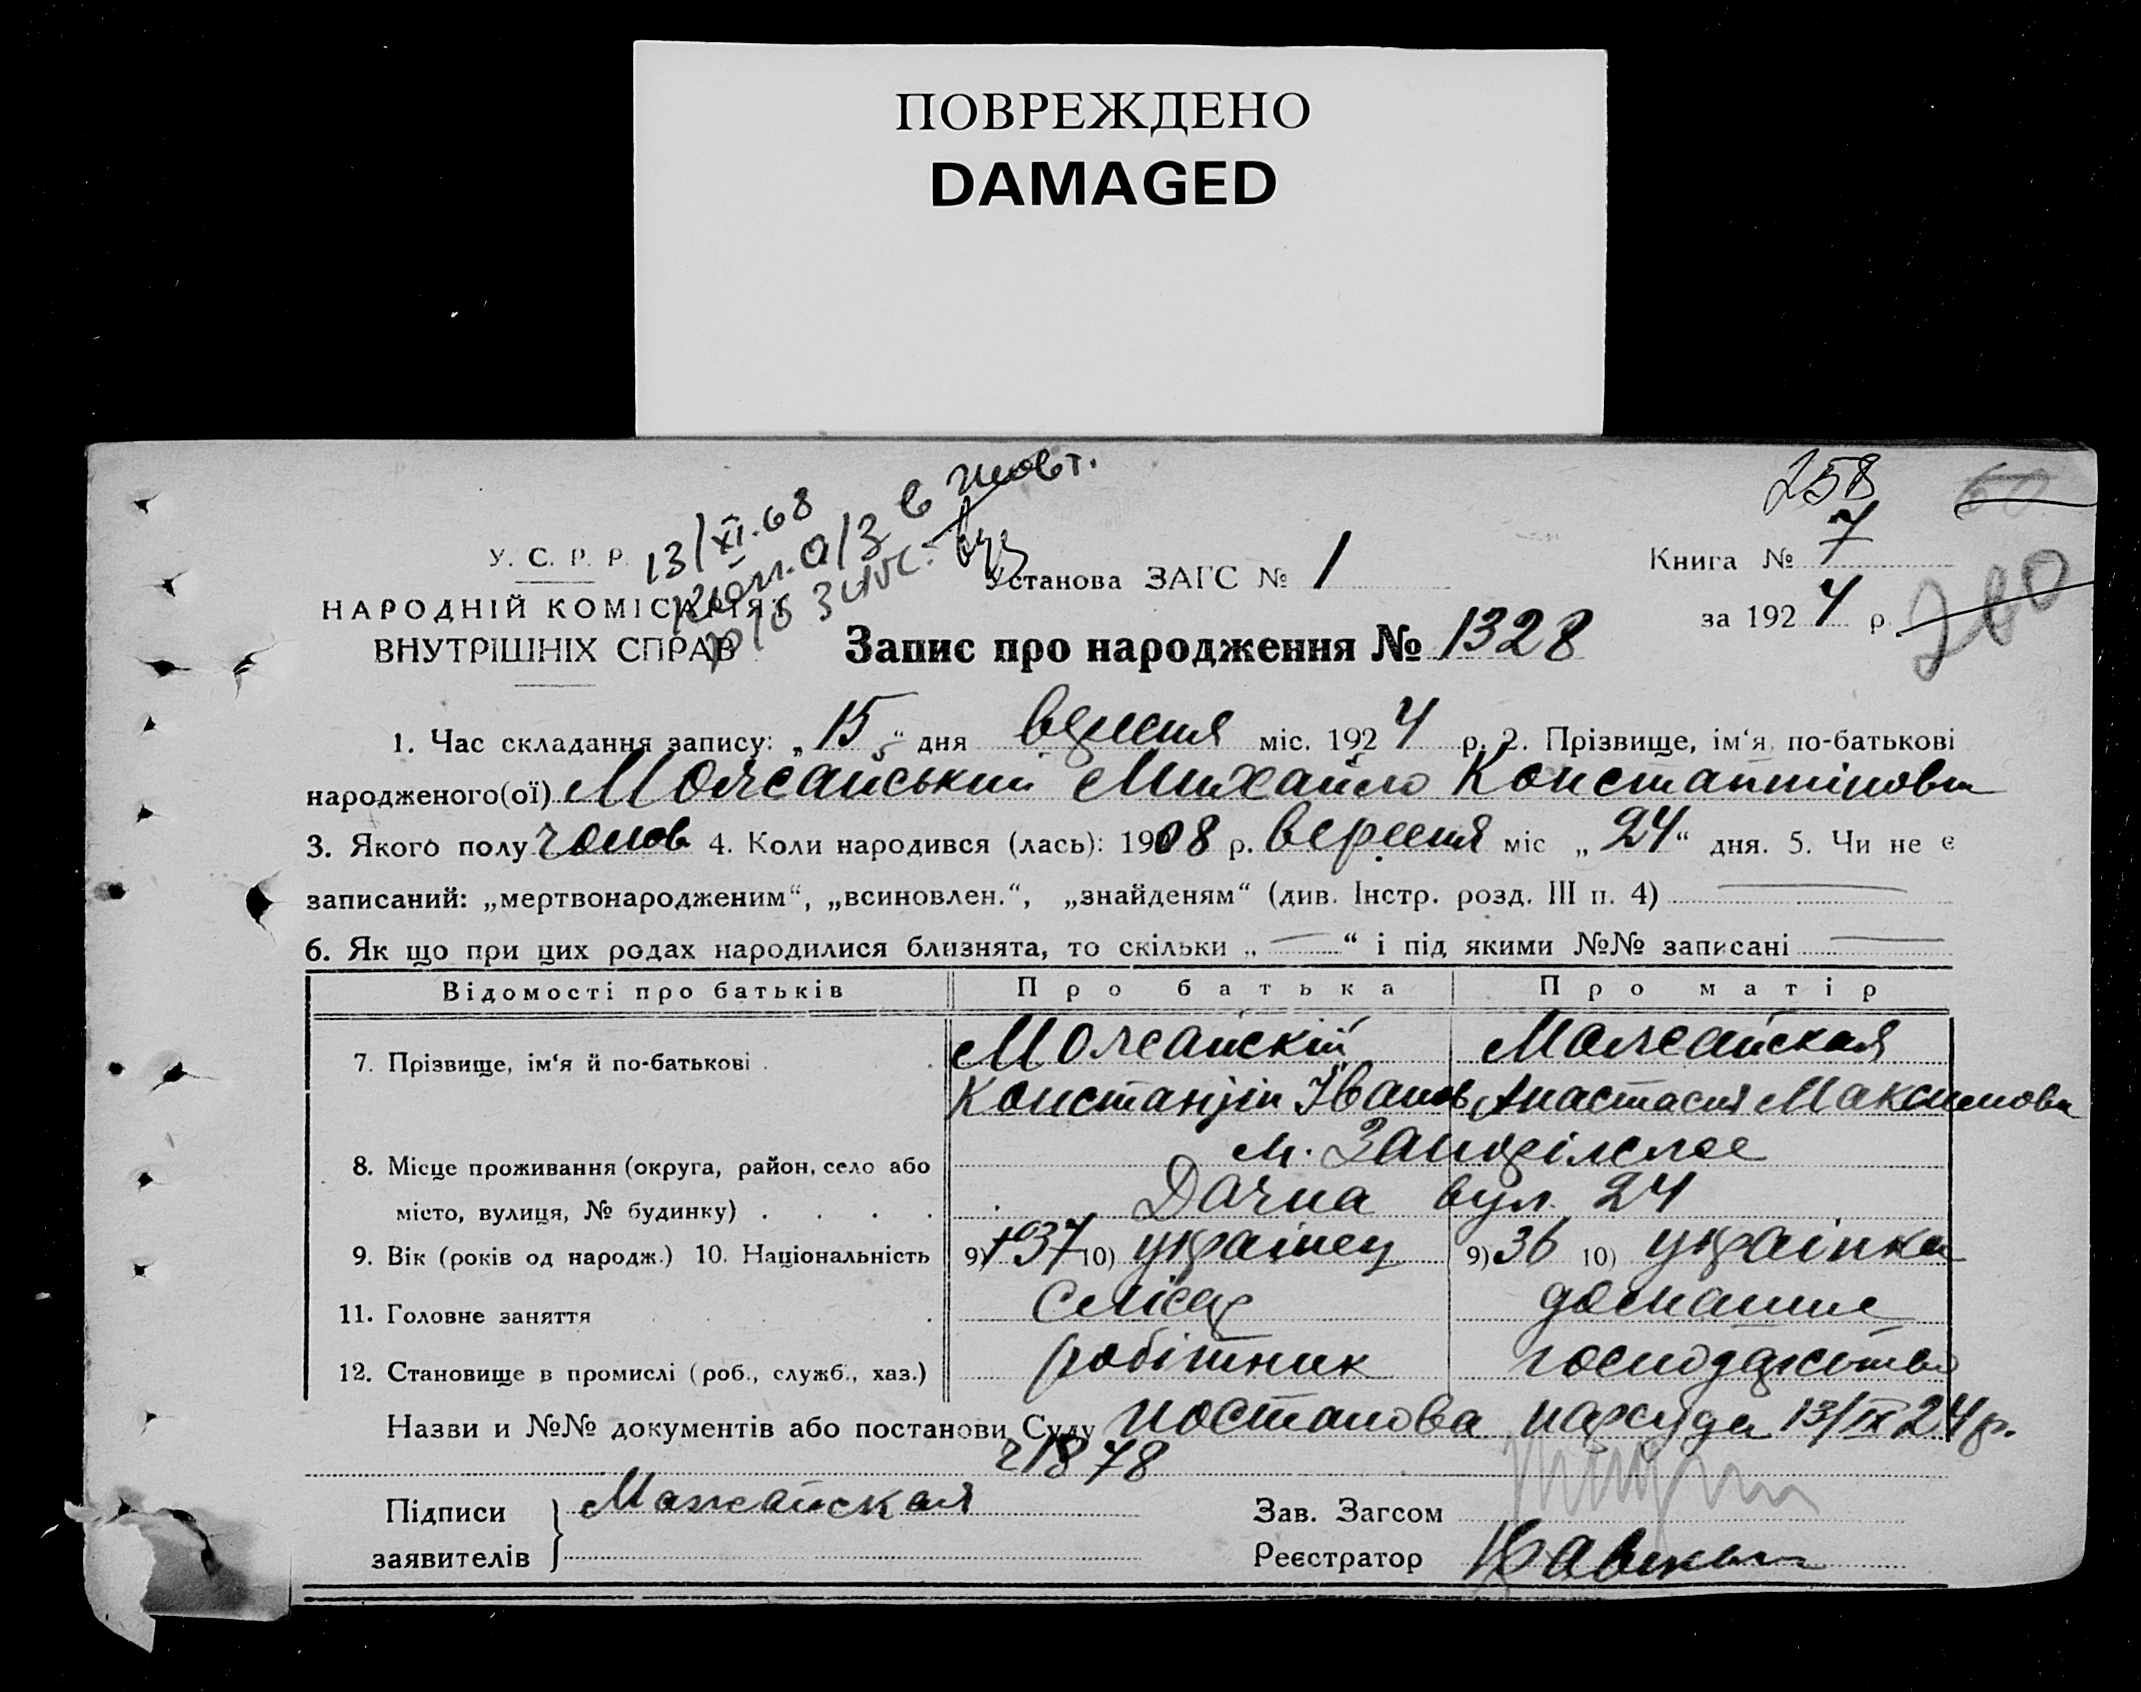 ПОВРЕЖДЕНО
DAMAGED
258
60
13/XI.68
в жовт.
У. С. Р. Р.
НАРОДНІЙ КОМІСАРІЯТ
ВНУТРІШНІХ СПРАВ
Установа ЗАГС № 1
Книга № 7
за 1924 р.
260
Запис про народження № 1328
1. Час складання запису: „15“ дня вересня міс. 1924 р. 2. Прізвище, ім‘я, по-батькові
народженого(ої) Можайський Михайло Константінови
3. Якого полу чолов 4. Коли народився (лась): 1908 р. вересня міс „24“ дня. 5. Чи не є
записаний: „мертвонародженим“, „всиновлен.“, „знайденям“ (див. Інстр. розд. III п. 4)
6. Як що при цих родах народилися близнята, то скільки „ “ і під якими №№ записані
Відомості про батьків Про батька Про матір
7. Прізвище, ім‘я й по-батькові . Можайскій Можайская
Констанцін Іванов Анастасия Максимовн
8. Місце проживання (округа, район, село або м.
місто, вулиця, № будинку) . . . . Дачна вул. 24
9. Вік (років од народж.) 10. Національність 9) 37 10) українец 9) 36 10) українка
11. Головне заняття . слісар домашнє
12. Становище в промислі (роб., служб., хаз.) робітник господарство
Назви и №№ документів або постанови Суду постанова нарсуда 13/IX 24 р.
ч 1878
Підписи Можайская
заявителів
Зав. Загсом
Реєстратор